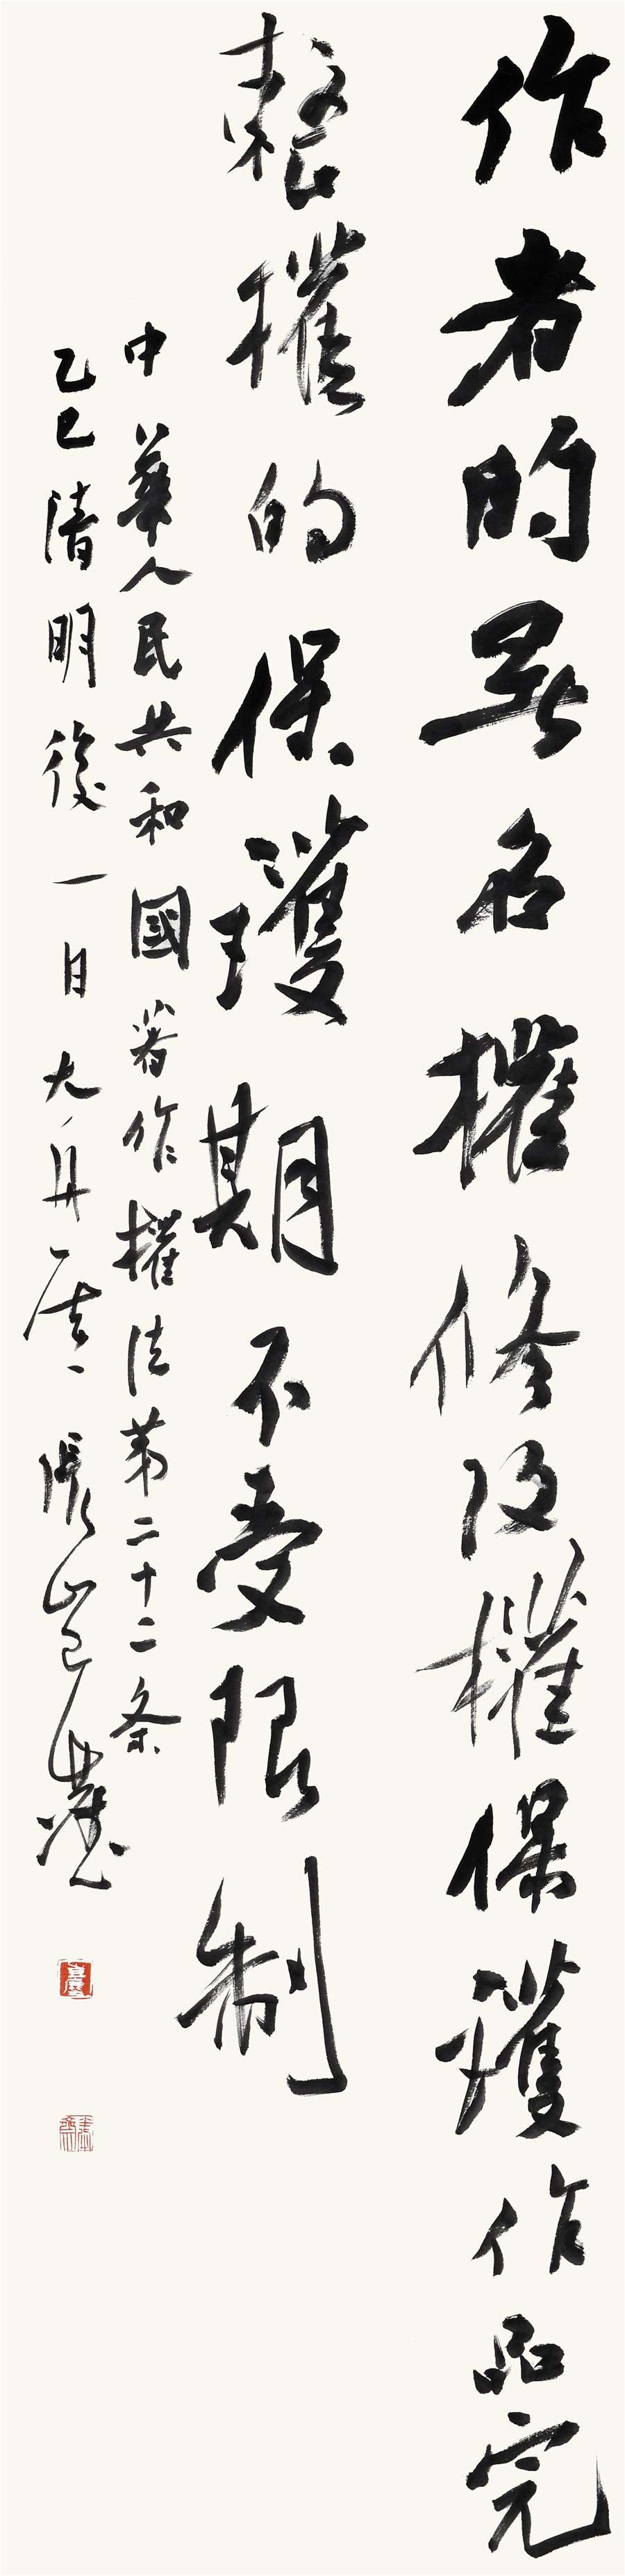 作者的署名權修改權保護作品完
整權的保護期不受限制
中華人民共和國著作權法第二十二条
乙巳清明後一日九舟居張